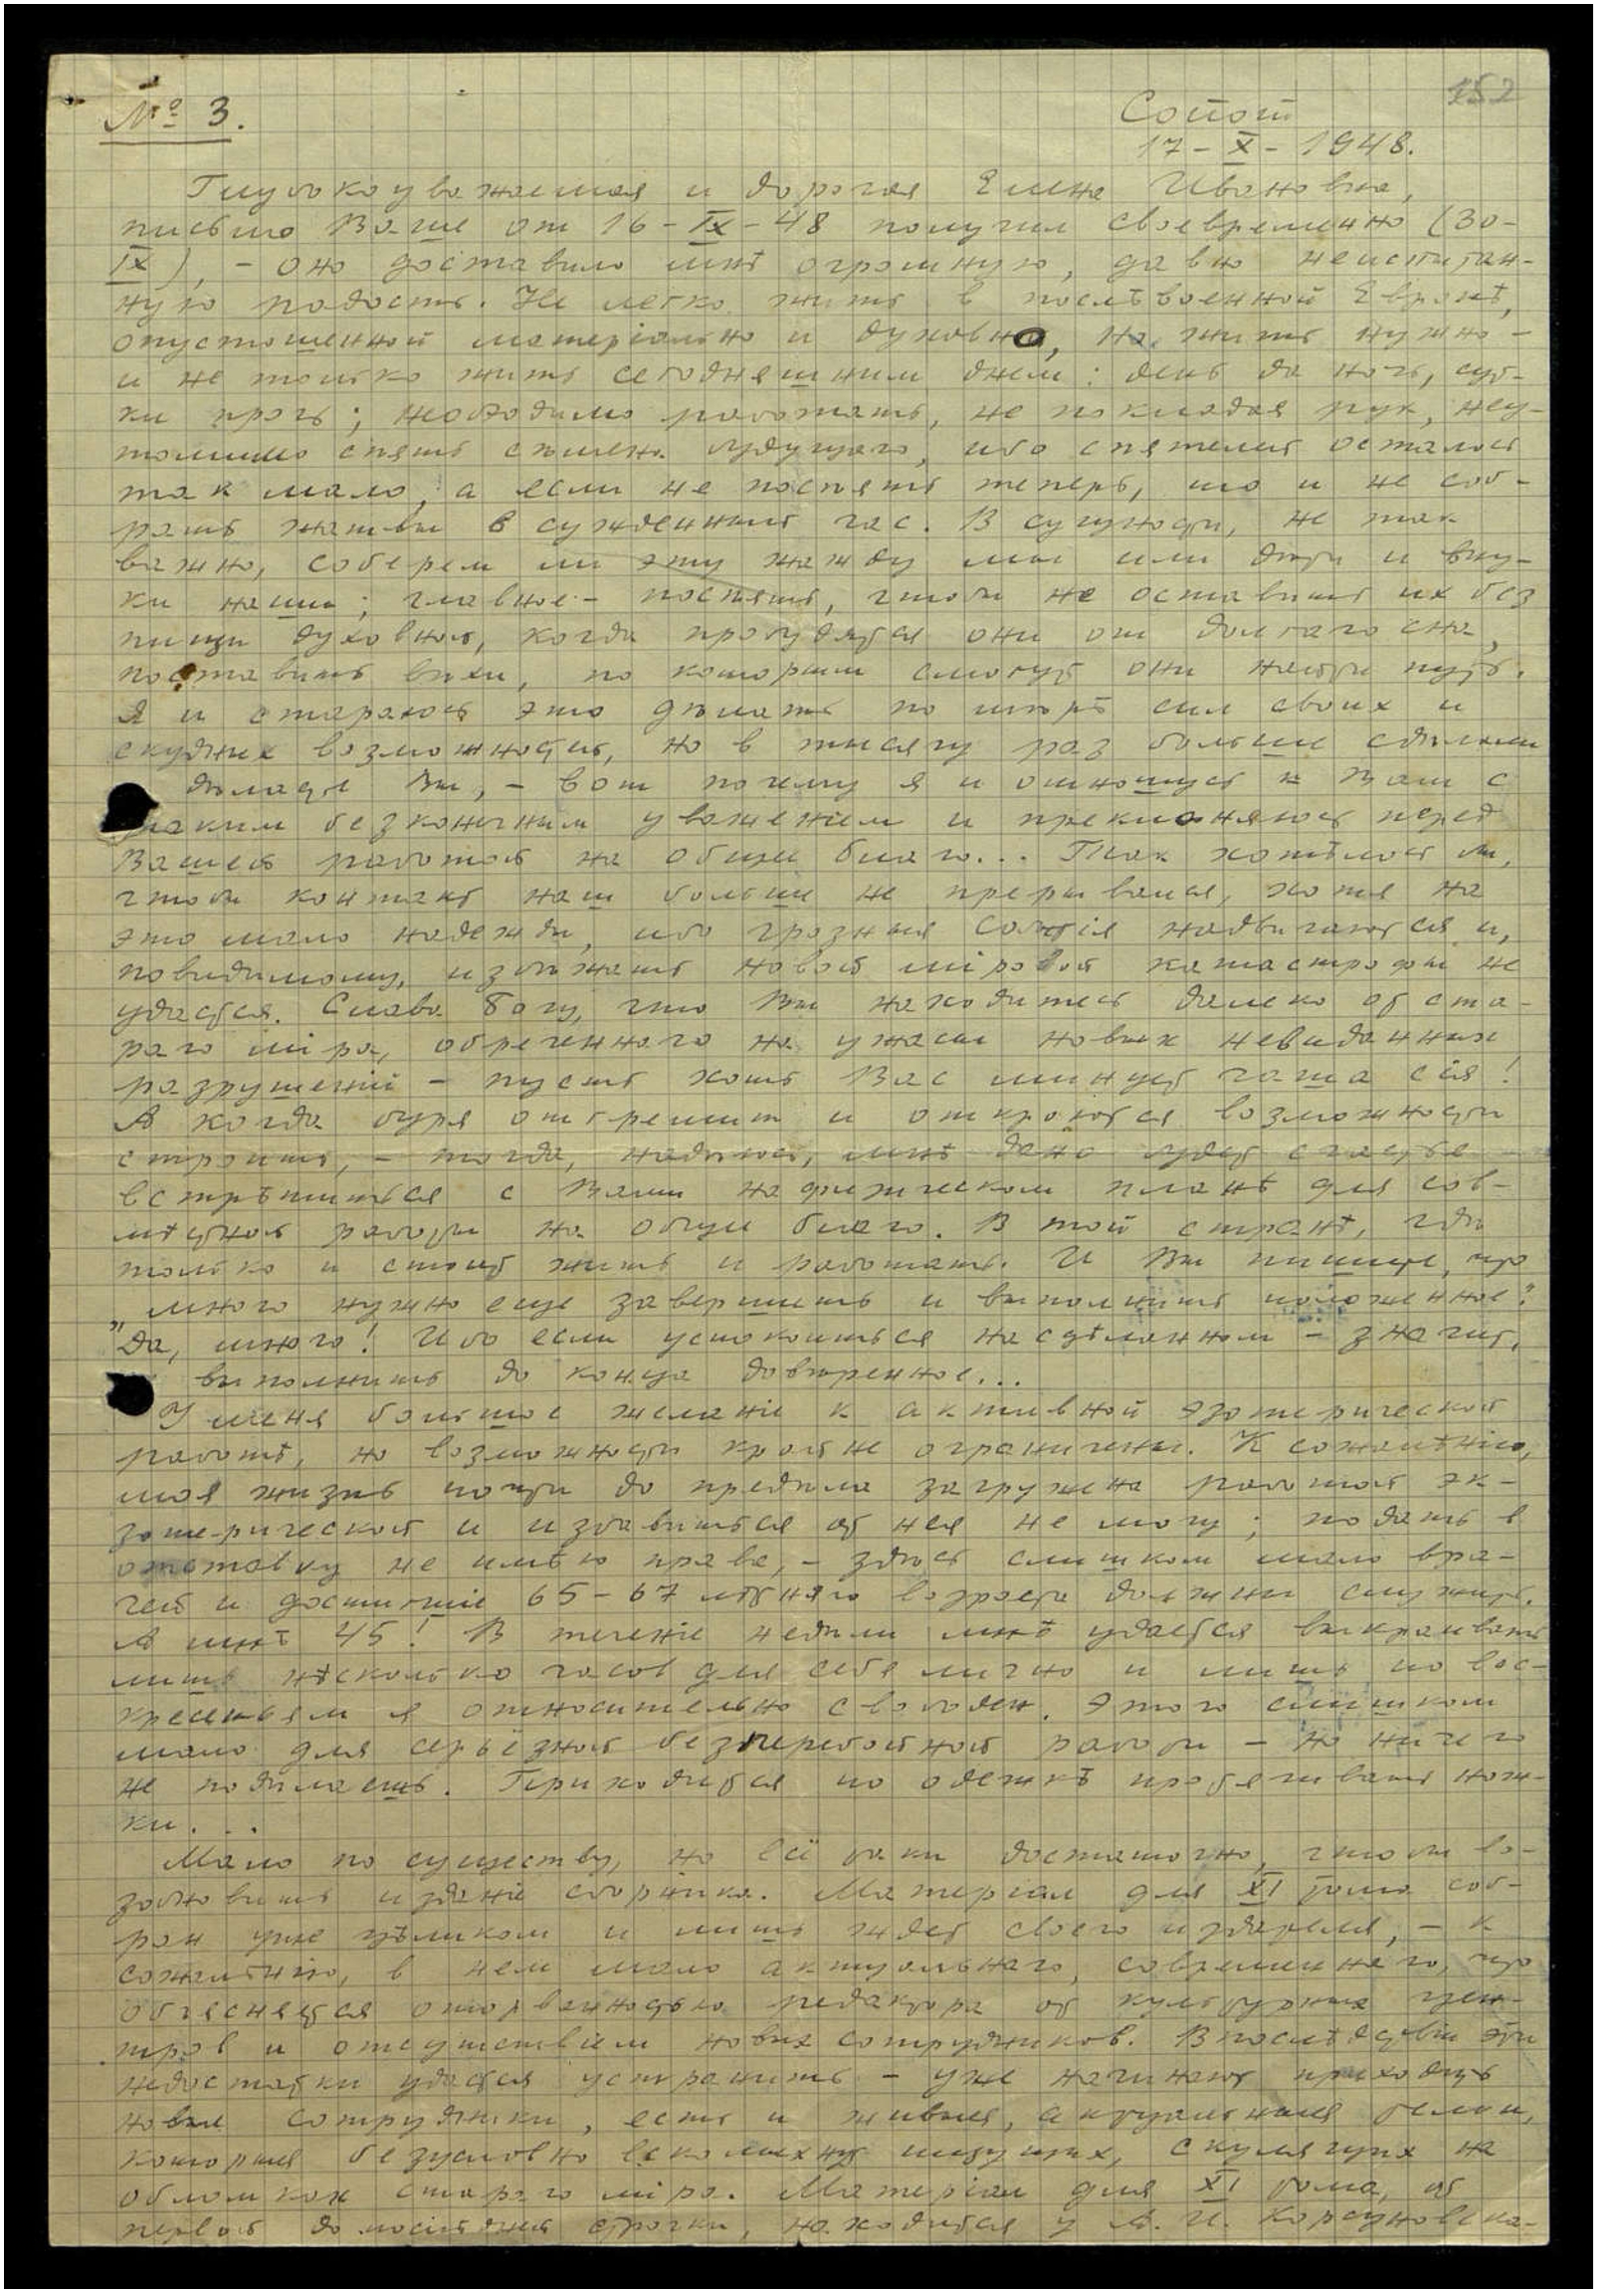 152
№ 3.
Сопот
17-X-1948.
Глубокоуважаемая и дорогая Елена Ивановна,
письмо Ваше от 16-IX-48 получил своевременно (30-
IX), - оно доставило мнѣ огромную, давно неиспытан-
ную радость. Не легко жить в послѣвоенной Европѣ,
опустошенной матеріально и духовно, но жить нужно -
и не только жить сегодняшним днем: день да ночь, сут-
ки прочь; необходимо работать, не покладая рук, неу-
томимо сѣять сѣмена будущаго, ибо сѣятелей осталось
так мало, а если не посѣять теперь, то и не соб-
рать жатвы в сужденный час. В сущности, не так
важно, соберем ли эту жатву мы или дѣти и вну-
ки наши; главное - посѣять, чтобы не оставить их без
пищи духовной, когда пробудятся они от долгаго сна,
поставить вѣхи, по которым смогут они найти путь.
Я и стараюсь это дѣлать по мѣрѣ сил своих и
скудных возможностей, но в тысячу раз больше сдѣлали
дѣлаете Вы, - вот почему я и отношусь к Вам с
таким безконечным уваженіем и преклоняюсь перед
Вашей работой на Общее благо... Так хотѣлось бы,
чтобы контакт наш больше не прерывался, хотя на
это мало надежды, ибо грозныя событія надвигаются и,
повидимому, избѣжать новой міровой катастрофы не
удастся. Слава Богу, что Вы находитесь далеко от ста-
раго міра, обреченнаго на ужасы новых невиданных
разрушеній - пусть хоть Вас минует чаша сія!
А когда буря отгремит и откроются возможности
строить, - тогда, надѣюсь, мнѣ дано будет счастье
встрѣтиться с Вами на физическом планѣ для сов-
мѣстной работы на Общее благо. В той странѣ, гдѣ
только и стоит жить и работать. И Вы пишете, что
„много нужно еще завершить и выполнить положенное".
Да, много! Ибо если успокоиться на сдѣланном - значит,
выполнить до конца довѣренное...
У меня большое желаніе к активной эзотерической
работѣ, но возможности крайне ограничены. К сожалѣнію,
моя жизнь почти до предѣла загружена работой эк-
зотерической и избавиться от нея не могу; подать в
отставку не имѣю права, - здѣсь слишком мало вра-
чей и достигшіе 65-67 лѣтняго возраста должны служить.
А мнѣ 45! В теченіе недѣли мнѣ удается выкраивать
лишь нѣсколько часов для себя лично и лишь по вос-
кресеньям я относительно свободен. Этого слишком
мало для серьёзной безперебойной работы - но ничего
не подѣлаешь. Приходится по одежкѣ протягивать нож-
ки...
Мало по существу, но всё таки достаточно, чтобы во-
зобновить изданіе сборника. Матеріал для XI тома соб-
ран уже цѣликом и лишь ждет своего издателя, - к
сожалѣнію, в нем мало актуальнаго, современнаго, что
объясняется оторванностью редактора от культурных цен-
тров и отсутствіем новых сотрудников. Впослѣдствіи эти
недостатки удастся устранить - уже начинают приходить
новые сотрудники, есть и живыя, актуальныя темы,
которыя безусловно всколыхнут ищущих, скулящих на
обломках стараго міра. Матеріал для XI тома, от
первой до послѣдней строчки, находится у А. И. Корсуновска-